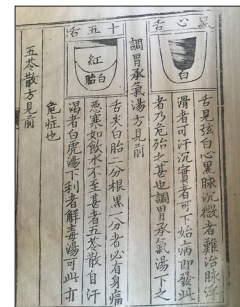 氣心舌
白
舌見弦白心黑脉沉微者難治脉浮
滑者可汗沉實者可下始病即發此
者乃危殆之甚也調胃承氣湯下之
調胃承氣湯方見前
十五舌
紅
白胎
舌尖白胎二分根黑一分者必有身痛
惡寒如飲水不至甚者五苓散自汗
渴者白虎湯下利者解毒湯可此亦
危症也
五苓散方見前